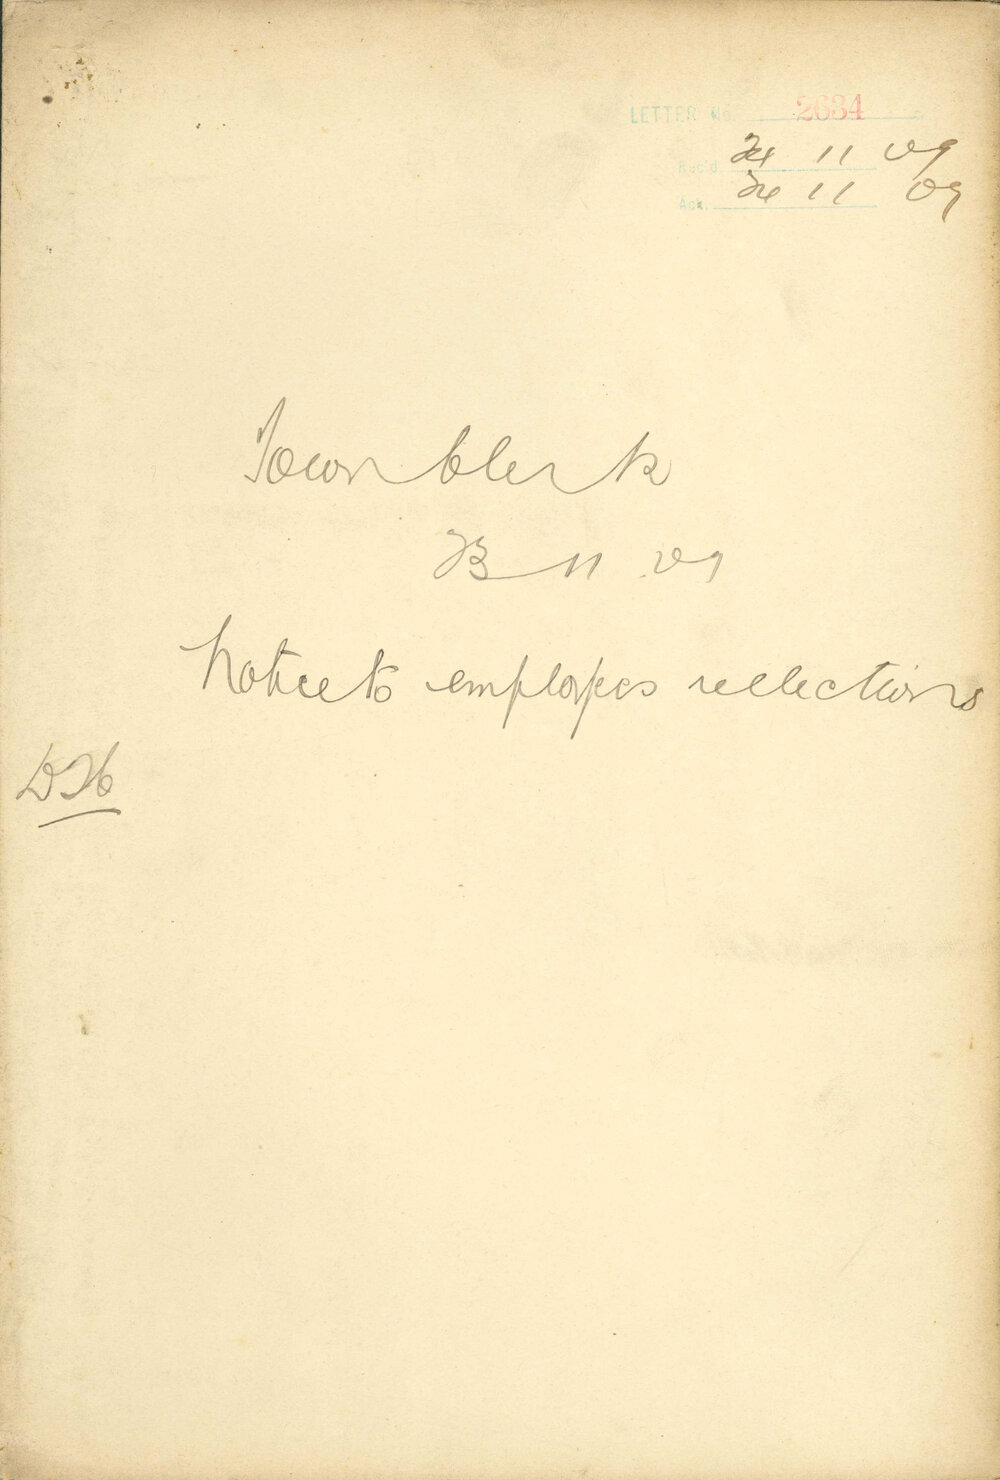 LETTER No. 2634
Rec'd 24 11 09
Ack. 24 11 09
Town Clerk
23 11 09
Notice to employees re elections